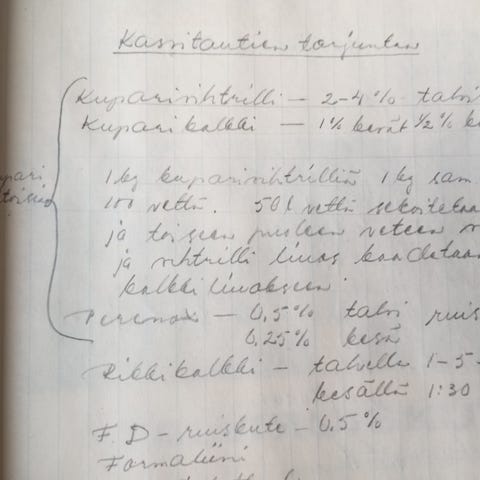 Kasvitautien torjuntaa
Kuparivihtrilli – 2–4% talvi
Kuparikalkki – 1% kevät ½% k
1 kg kuparivihtrilliä 1 kg sam
100 vettä. 50 l vettä sekoitetaa
ja toiseen puoleen veteen
ja vihtrilli liuos kaadetaan
kalkki liuokseen
Perenox – 0,5% talvi ruis
0,25% kesä
Rikkikalkki – talvella 1–5–
kesällä 1:30
F. D – ruiskute – 0.5%
Formaliini